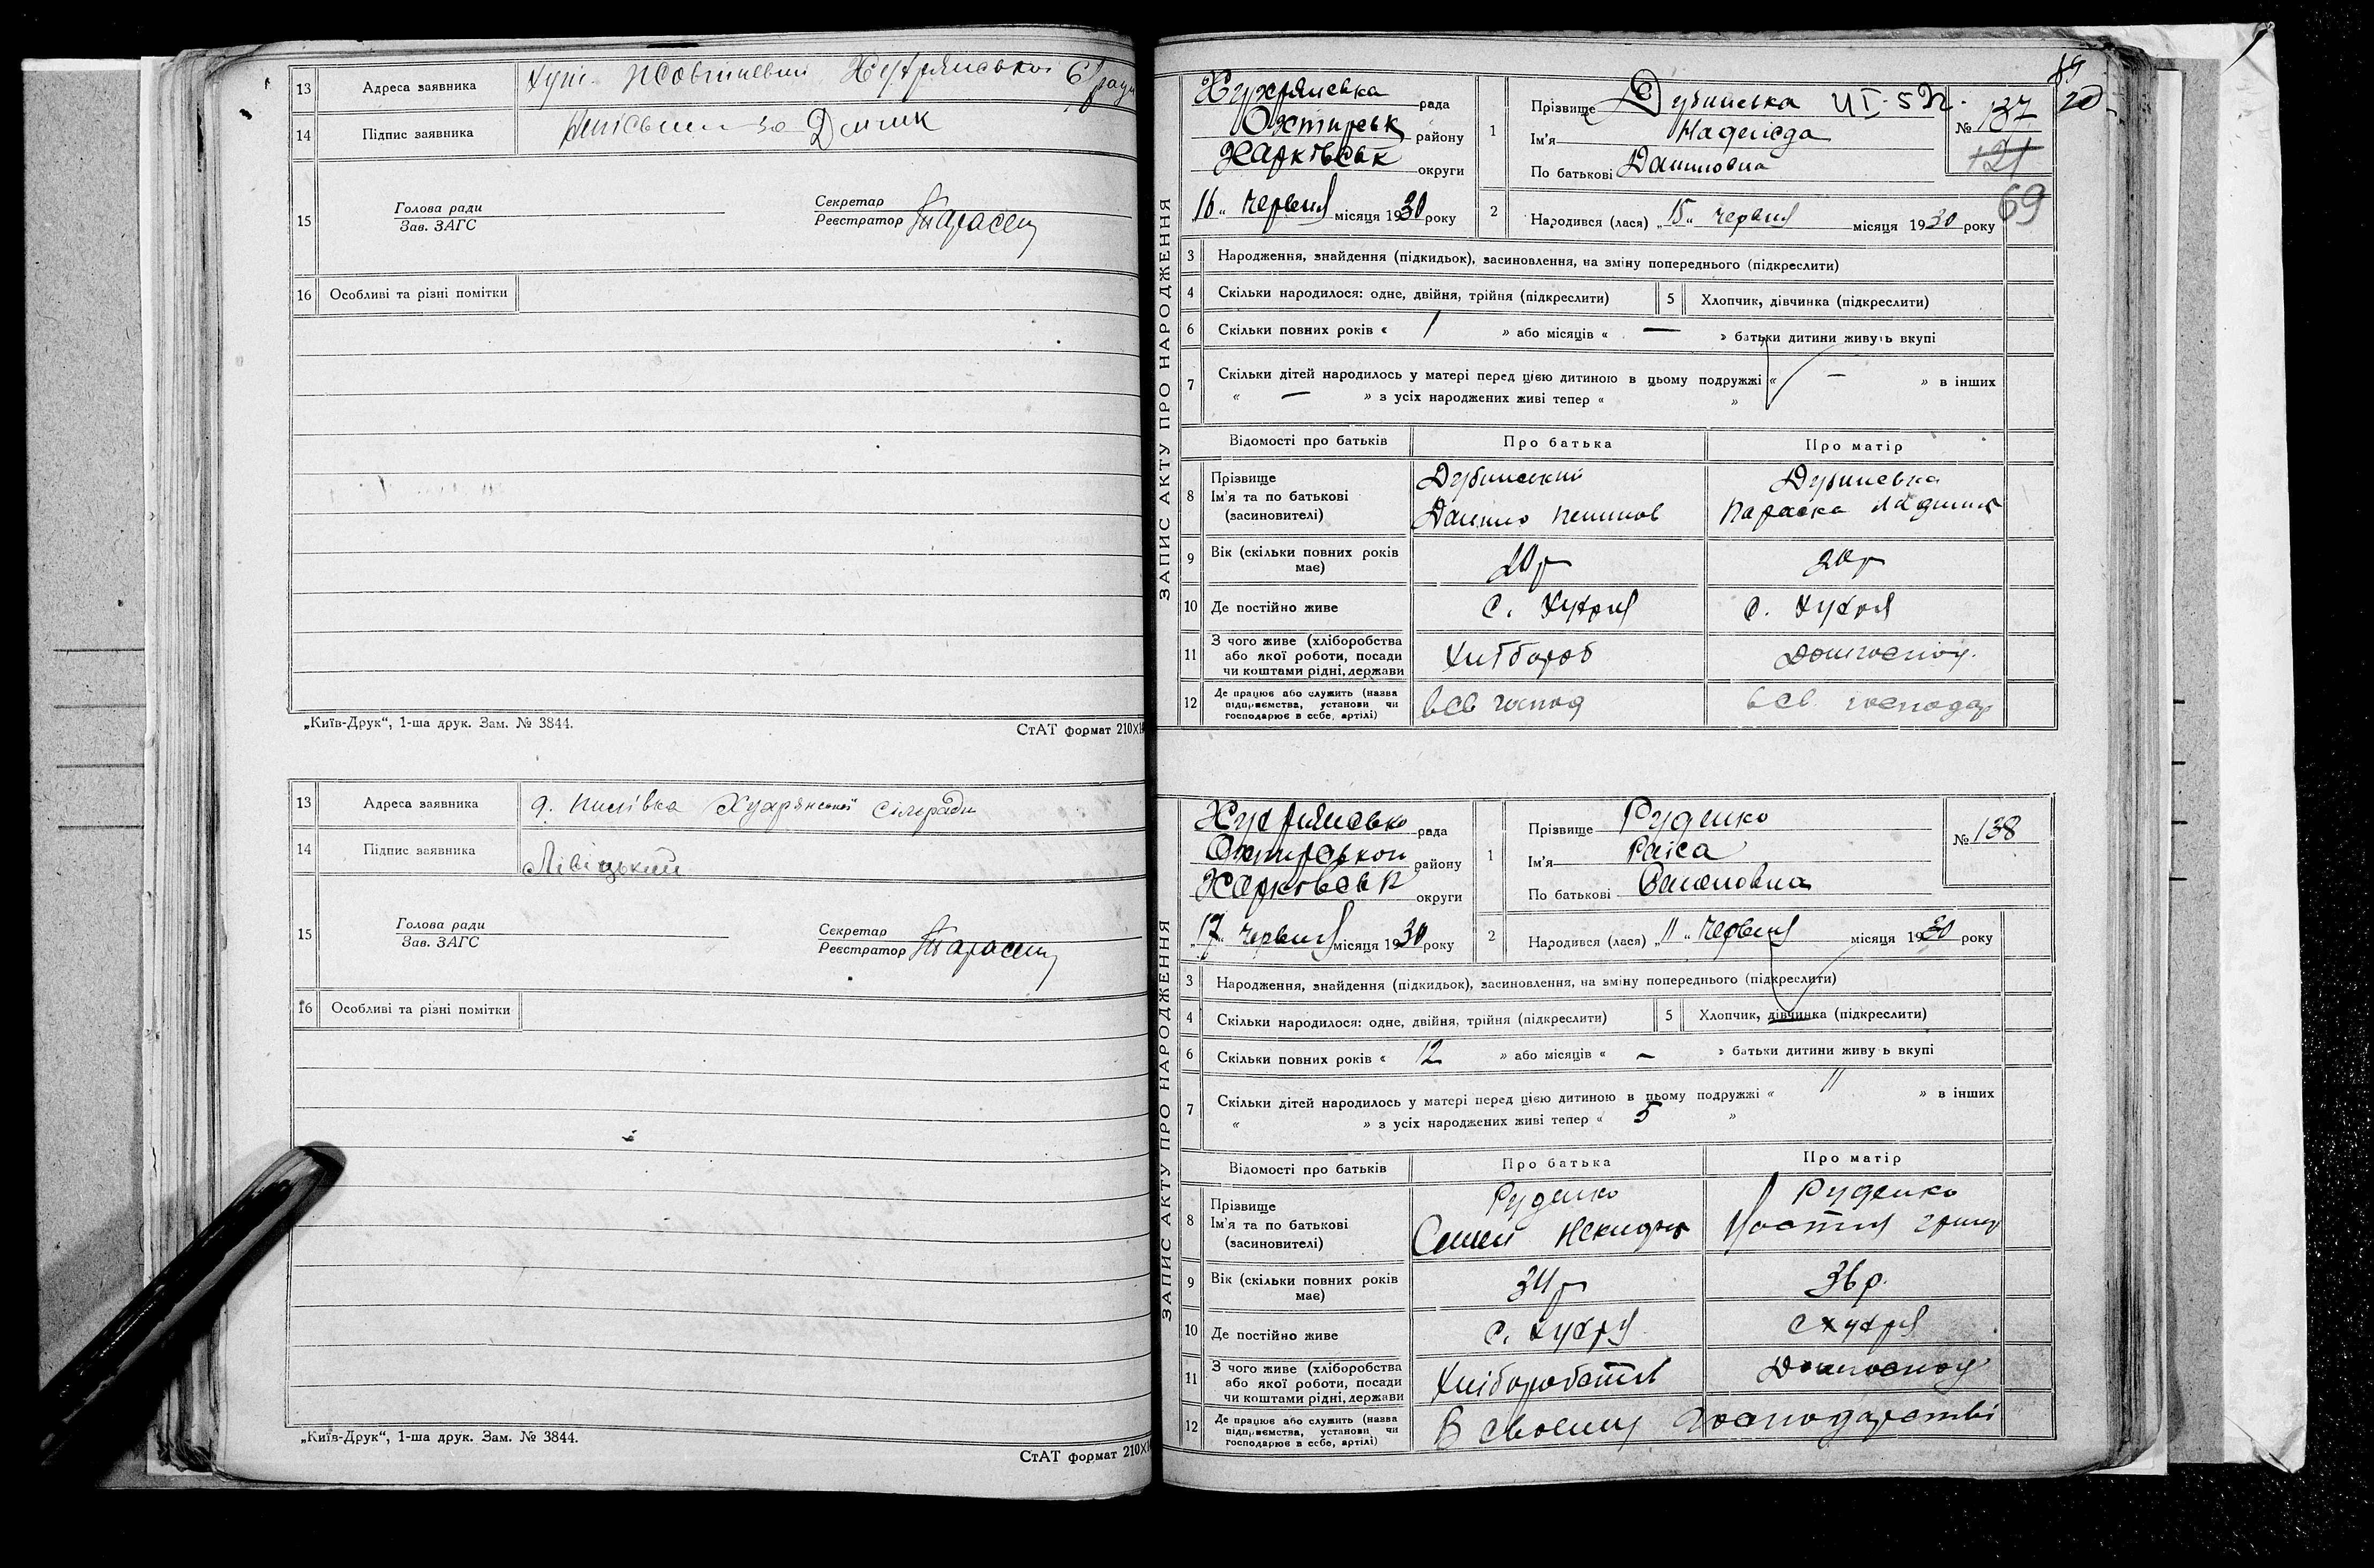 13 Адреса заявника Хут. Жовтневий Хухрянської с/ради
14 Підпис заявника
15 Голова ради
Зав. ЗАГС
Секретар
Реєстратор Тарасен
16 Особливі та різні помітки
„Київ-Друк“, 1-ша друк. Зам. № 3844.
СтАТ формат 210Х
13 Адреса заявника Хухрянської сільради
14 Підпис заявника Лівіцький
15 Голова ради
Зав. ЗАГС
Секретар
Реєстратор Тарасен
16 Особливі та різні помітки
„Київ-Друк“, 1-ша друк. Зам. № 3844.
СтАТ формат 210Х
19
20
ЗАПИС АКТУ ПРО НАРОДЖЕННЯ
Хухрянська рада
Охтирськ району
Харківськ округи
„16“ червня місяця 1930 року
1 Прізвище Дубинська
Ім'я Надежда
По батькові Даниловна
№ 137
121
69
2 Народився (лася) „15“ червня місяця 1930 року
3 Народження, знайдення (підкидьок), засиновлення, на зміну попереднього (підкреслити)
4 Скільки народилося: одне, двійня, трійня (підкреслити) 5 Хлопчик, дівчинка (підкреслити)
6 Скільки повних років « 1 » або місяців « — » батьки дитини живуть вкупі
7 Скільки дітей народилось у матері перед цією дитиною в цьому подружжі « — » в інших
« — » з усіх народжених живі тепер « »
Відомості про батьків Про батька Про матір
8 Прізвище Дубинський Дубинська
Ім'я та по батькові
(засиновителі) Данило Параска
9 Вік (скільки повних років має) 20 р 20 р
10 Де постійно живе с. Хухря с. Хухря
11 З чого живе (хліборобства або якої роботи, посади чи коштами рідні, держави Хлібороб Домгоспод.
12 Де працює або служить (назва підприємства, установи чи господарює в себе, артілі) в св господ в св. господар
ЗАПИС АКТУ ПРО НАРОДЖЕННЯ
Хухрянсько рада
Охтирської району
Харківськ округи
„17“ червня місяця 1930 року
1 Прізвище Руденко
Ім'я Раіса
По батькові Семеновна
№ 138
2 Народився (лася) „11“ червня місяця 1930 року
3 Народження, знайдення (підкидьок), засиновлення, на зміну попереднього (підкреслити)
4 Скільки народилося: одне, двійня, трійня (підкреслити) 5 Хлопчик, дівчинка (підкреслити)
6 Скільки повних років « 12 » або місяців « — » батьки дитини живу ь вкупі
7 Скільки дітей народилось у матері перед цією дитиною в цьому подружжі « 11 » в інших
« » з усіх народжених живі тепер « 5 »
Відомості про батьків Про батька Про матір
8 Прізвище Руденко Руденко
Ім'я та по батькові
(засиновителі) Семен
9 Вік (скільки повних років має) 34 р 36 р.
10 Де постійно живе с. Хухря с Хухря
11 З чого живе (хліборобства або якої роботи, посади чи коштами рідні, держави Хліборобства Домгоспод
12 Де працює або служить (назва підприємства, установи чи господарює в себе, артілі) В своєму господарстві